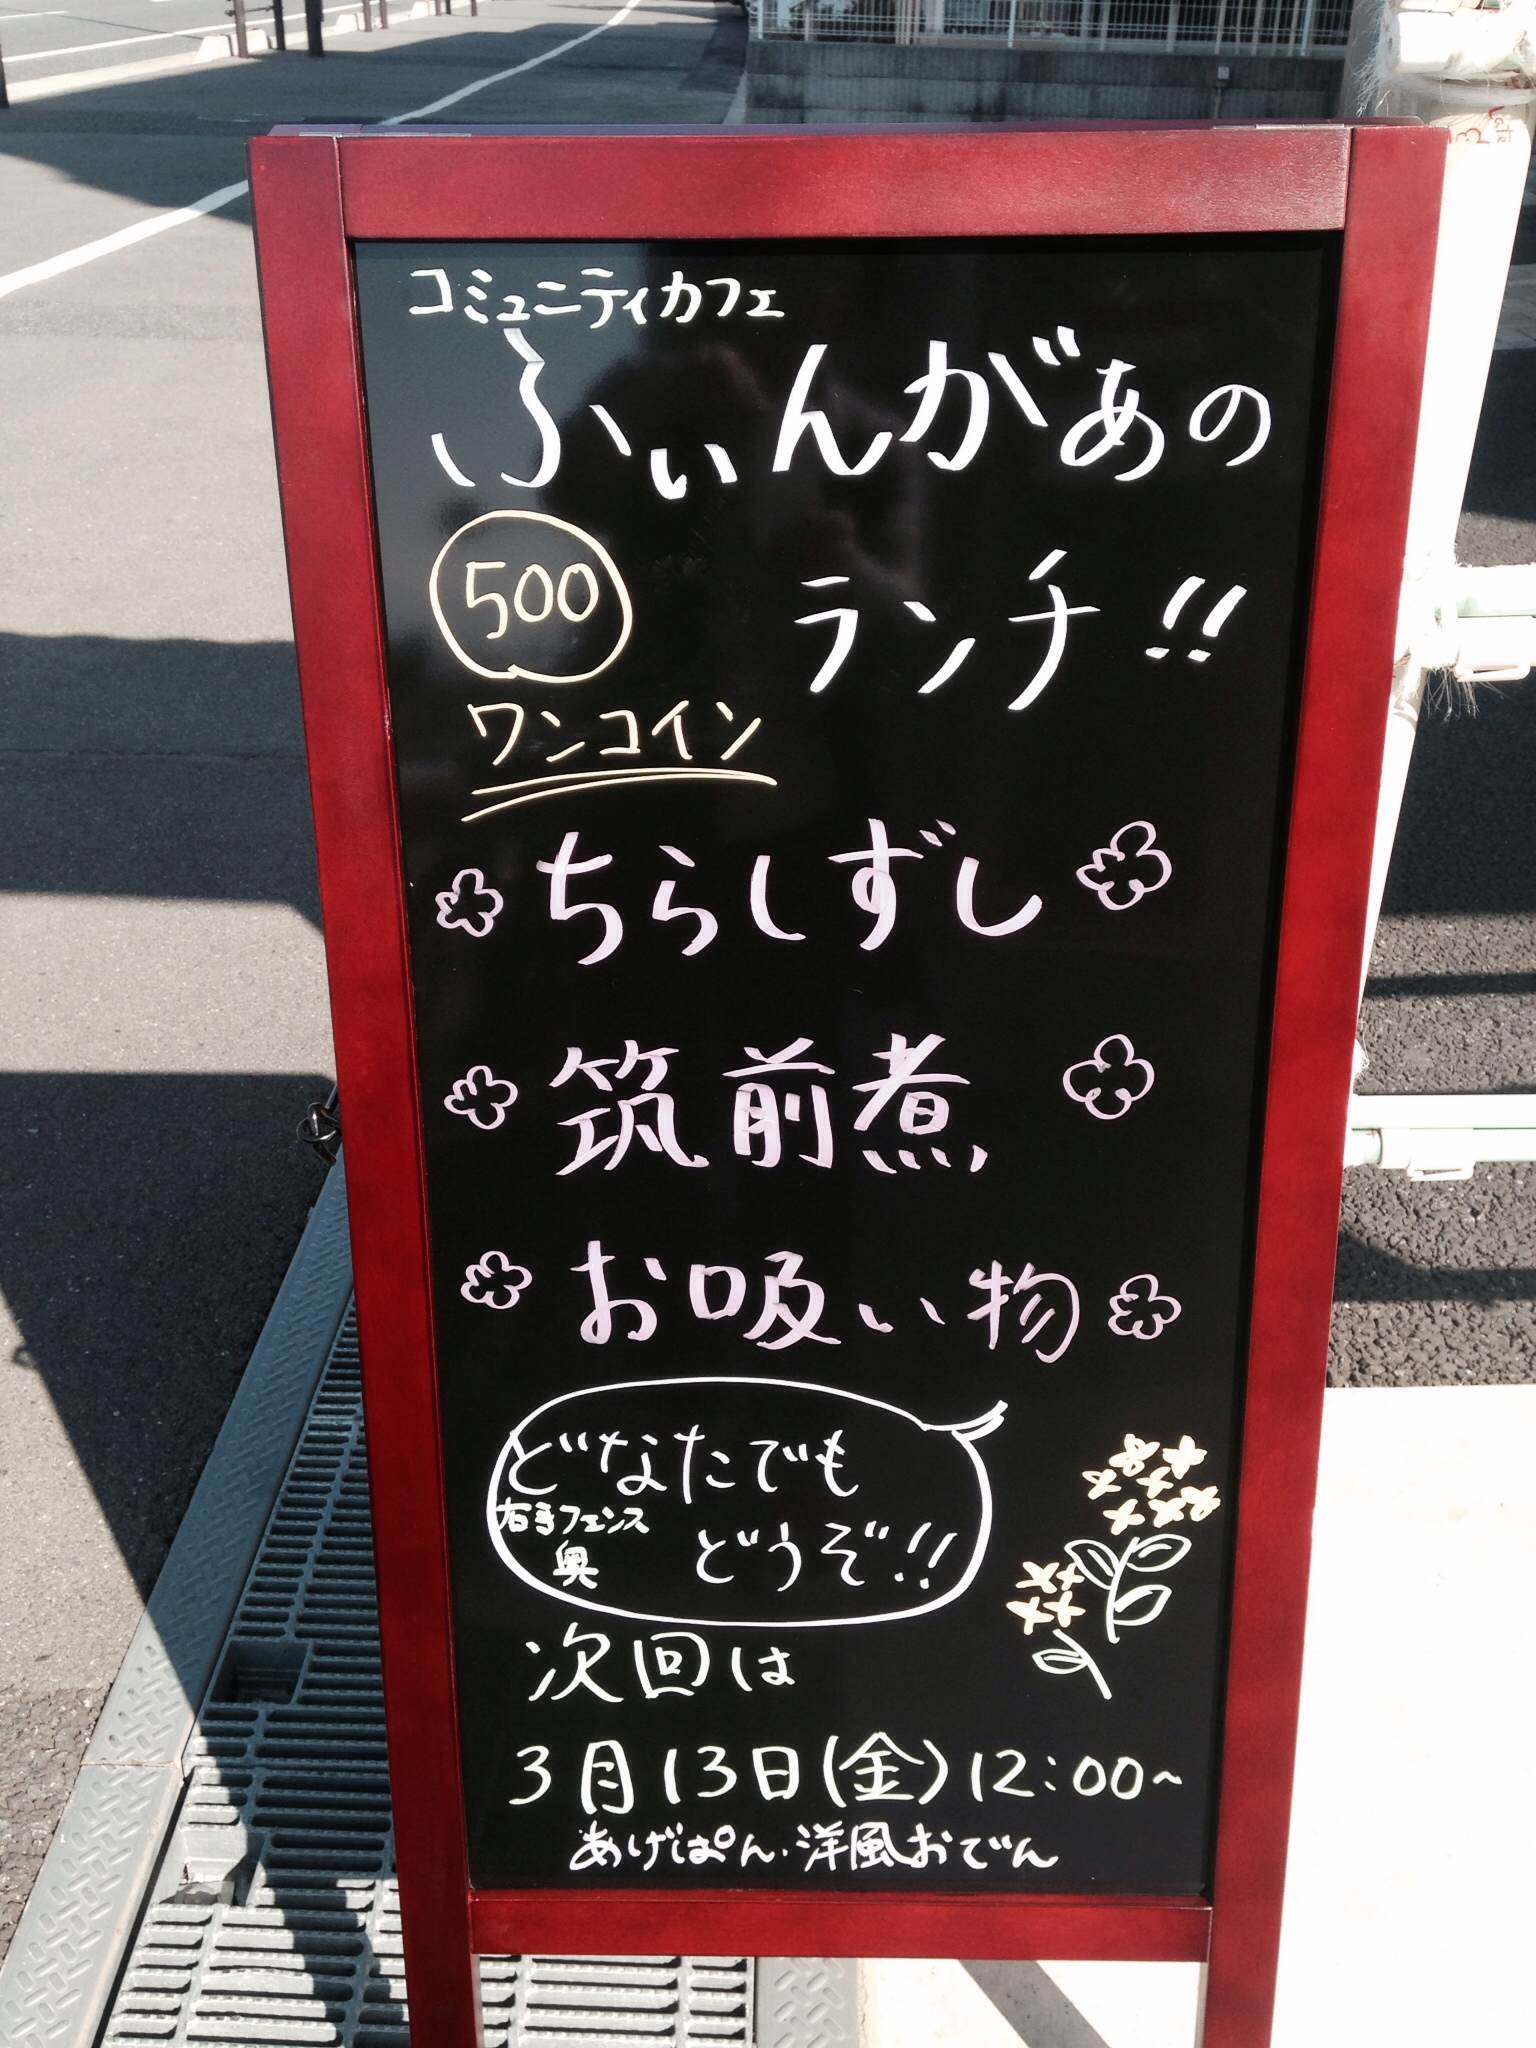 コミュニティカフェ
ふぃんがあの
ランチ!!
500
ワンコイン
ちらしずし
筑前煮
お吸い物
どなたでも
どうぞ!!
右手フェンス
奥
次回は
3月13日(金)12:00~
あげぱん・洋風おでん